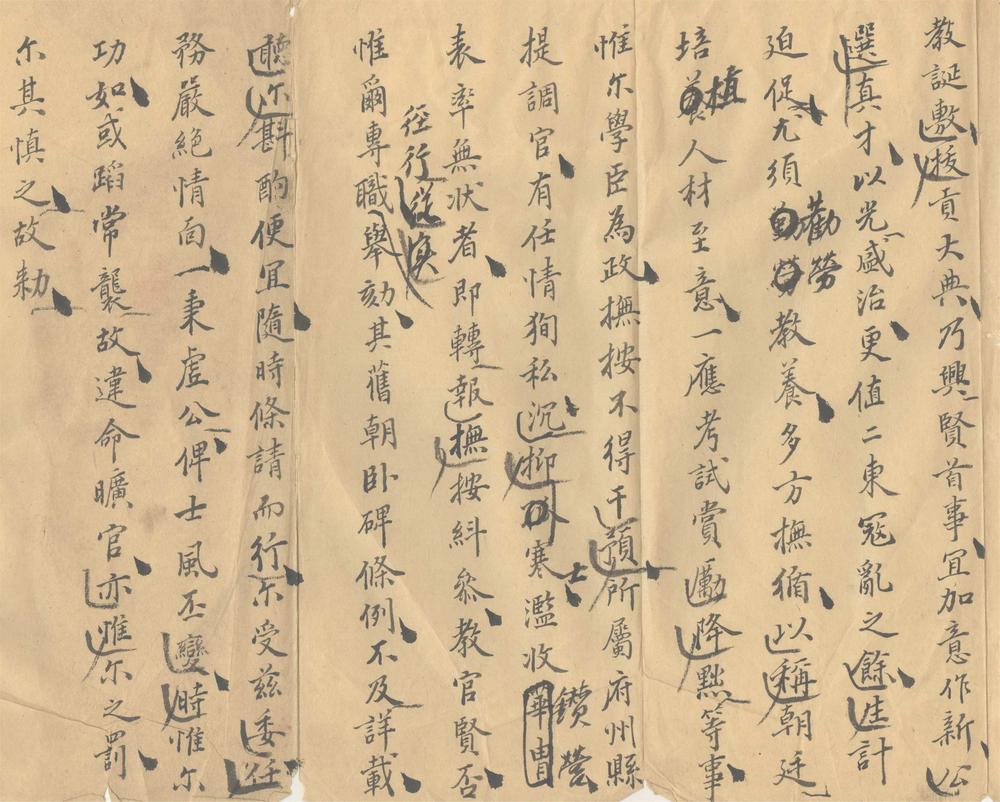 教誕敷拔貢大典乃興賢首事宜加意作新公
選真才以光盛治更值二東寇亂之餘生計
迫促尤須勸勞教養多方撫循以稱朝廷
培植人材至意一應考試賞勵降黜等事
惟尔學臣為政撫按不得干預所屬府州縣
提調官有任情狥私沉抑寒士濫收鑽營
表率無状者即轉報撫按糾叅教官賢否
徑行
惟爾專職舉劾其舊朝卧碑條例不及詳載
聽尔斟酌便宜隨時條請而行尔受兹委任
務嚴絕情面一秉虛公俾士風丕變時惟尔
功如或蹈常襲故違命曠官亦惟尔之罰
尔其慎之故勑